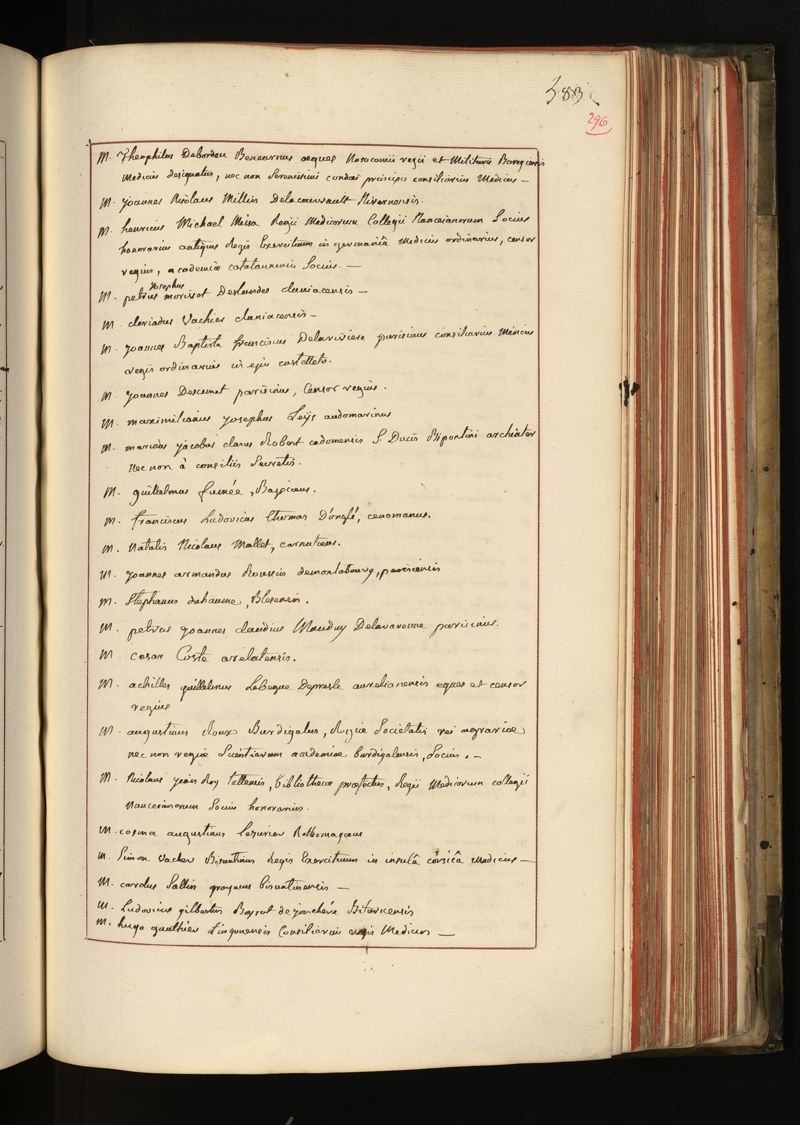 583
296
M. Theophilus Debordeu Benearnus eques Nosocomii regii et Militaris Baregiensis
Medicus designatus, nec non Serenissimi condaei principis consiliarius Medicus —
M. joannes Nicolaus Millin Delacourvault Nivernensis.
M. henricus Michael Missa Regii Medicorum Collegii Nanceianorum Socius
honorarius antiquus Regis Exercituum in germaniâ Medicus ordinarius, censor
regius, academiae catalaunensis Socius. —
Josephus
M. petrus morisot Deslandes claniacensis —
M. claviadus Vacher claniacensis —
M. joannes Baptista franciscus Delarivierre parisinus consiliarius Medicus
regis ordinarius in ejus castelleto.
M. joannes Descemet parisinus, Censor regius.
M. maximilianus josephus Leijs audomarinus
M. marinus jacobus clarus Robert cadomensis S. Ducis Bipontini archiater
nec non à consiliis Secretis.
M. guillelmus fumée,
M. franciscus Ludovicus thomas D'onglé, cenomanus.
M. Natalis Nicolaus Mallet, carnutaeus.
M. joannes armandus Roussin demontabourg, parisiensis
M. Stephanus dehaume, Blesensis.
M. petrus joannes claudius Mauduy Delavarenne parisinus.
M. cesar Coste arelatensis.
M. achilles guillelmus Lebegue Depresle aurelianensis eques et censor
regius
M. augustinus Roux Burdigalus, Regiae Societatis rei agrariae
nec non regiae Scientiarum academiae burdigalensis, Socius. —
M. Nicolaus jean Roy tullensis, bibliothecae praefectus, Regii Medicorum collegii
Nanceianorum Socius honorarius.
M. cosma augustinus Lezurier Rothomagaeus
M. Simon Vacher Bisuntinus Regis Exercituum in insulâ córsicâ Medicus —
M. carolus Sallin grayaeus bisuntinensis —
M. Ludovicus gilbertus Boyrot de jonchére Bituricensis
M. hugo gauthier Lingonensis Consiliarius regis Medicus —